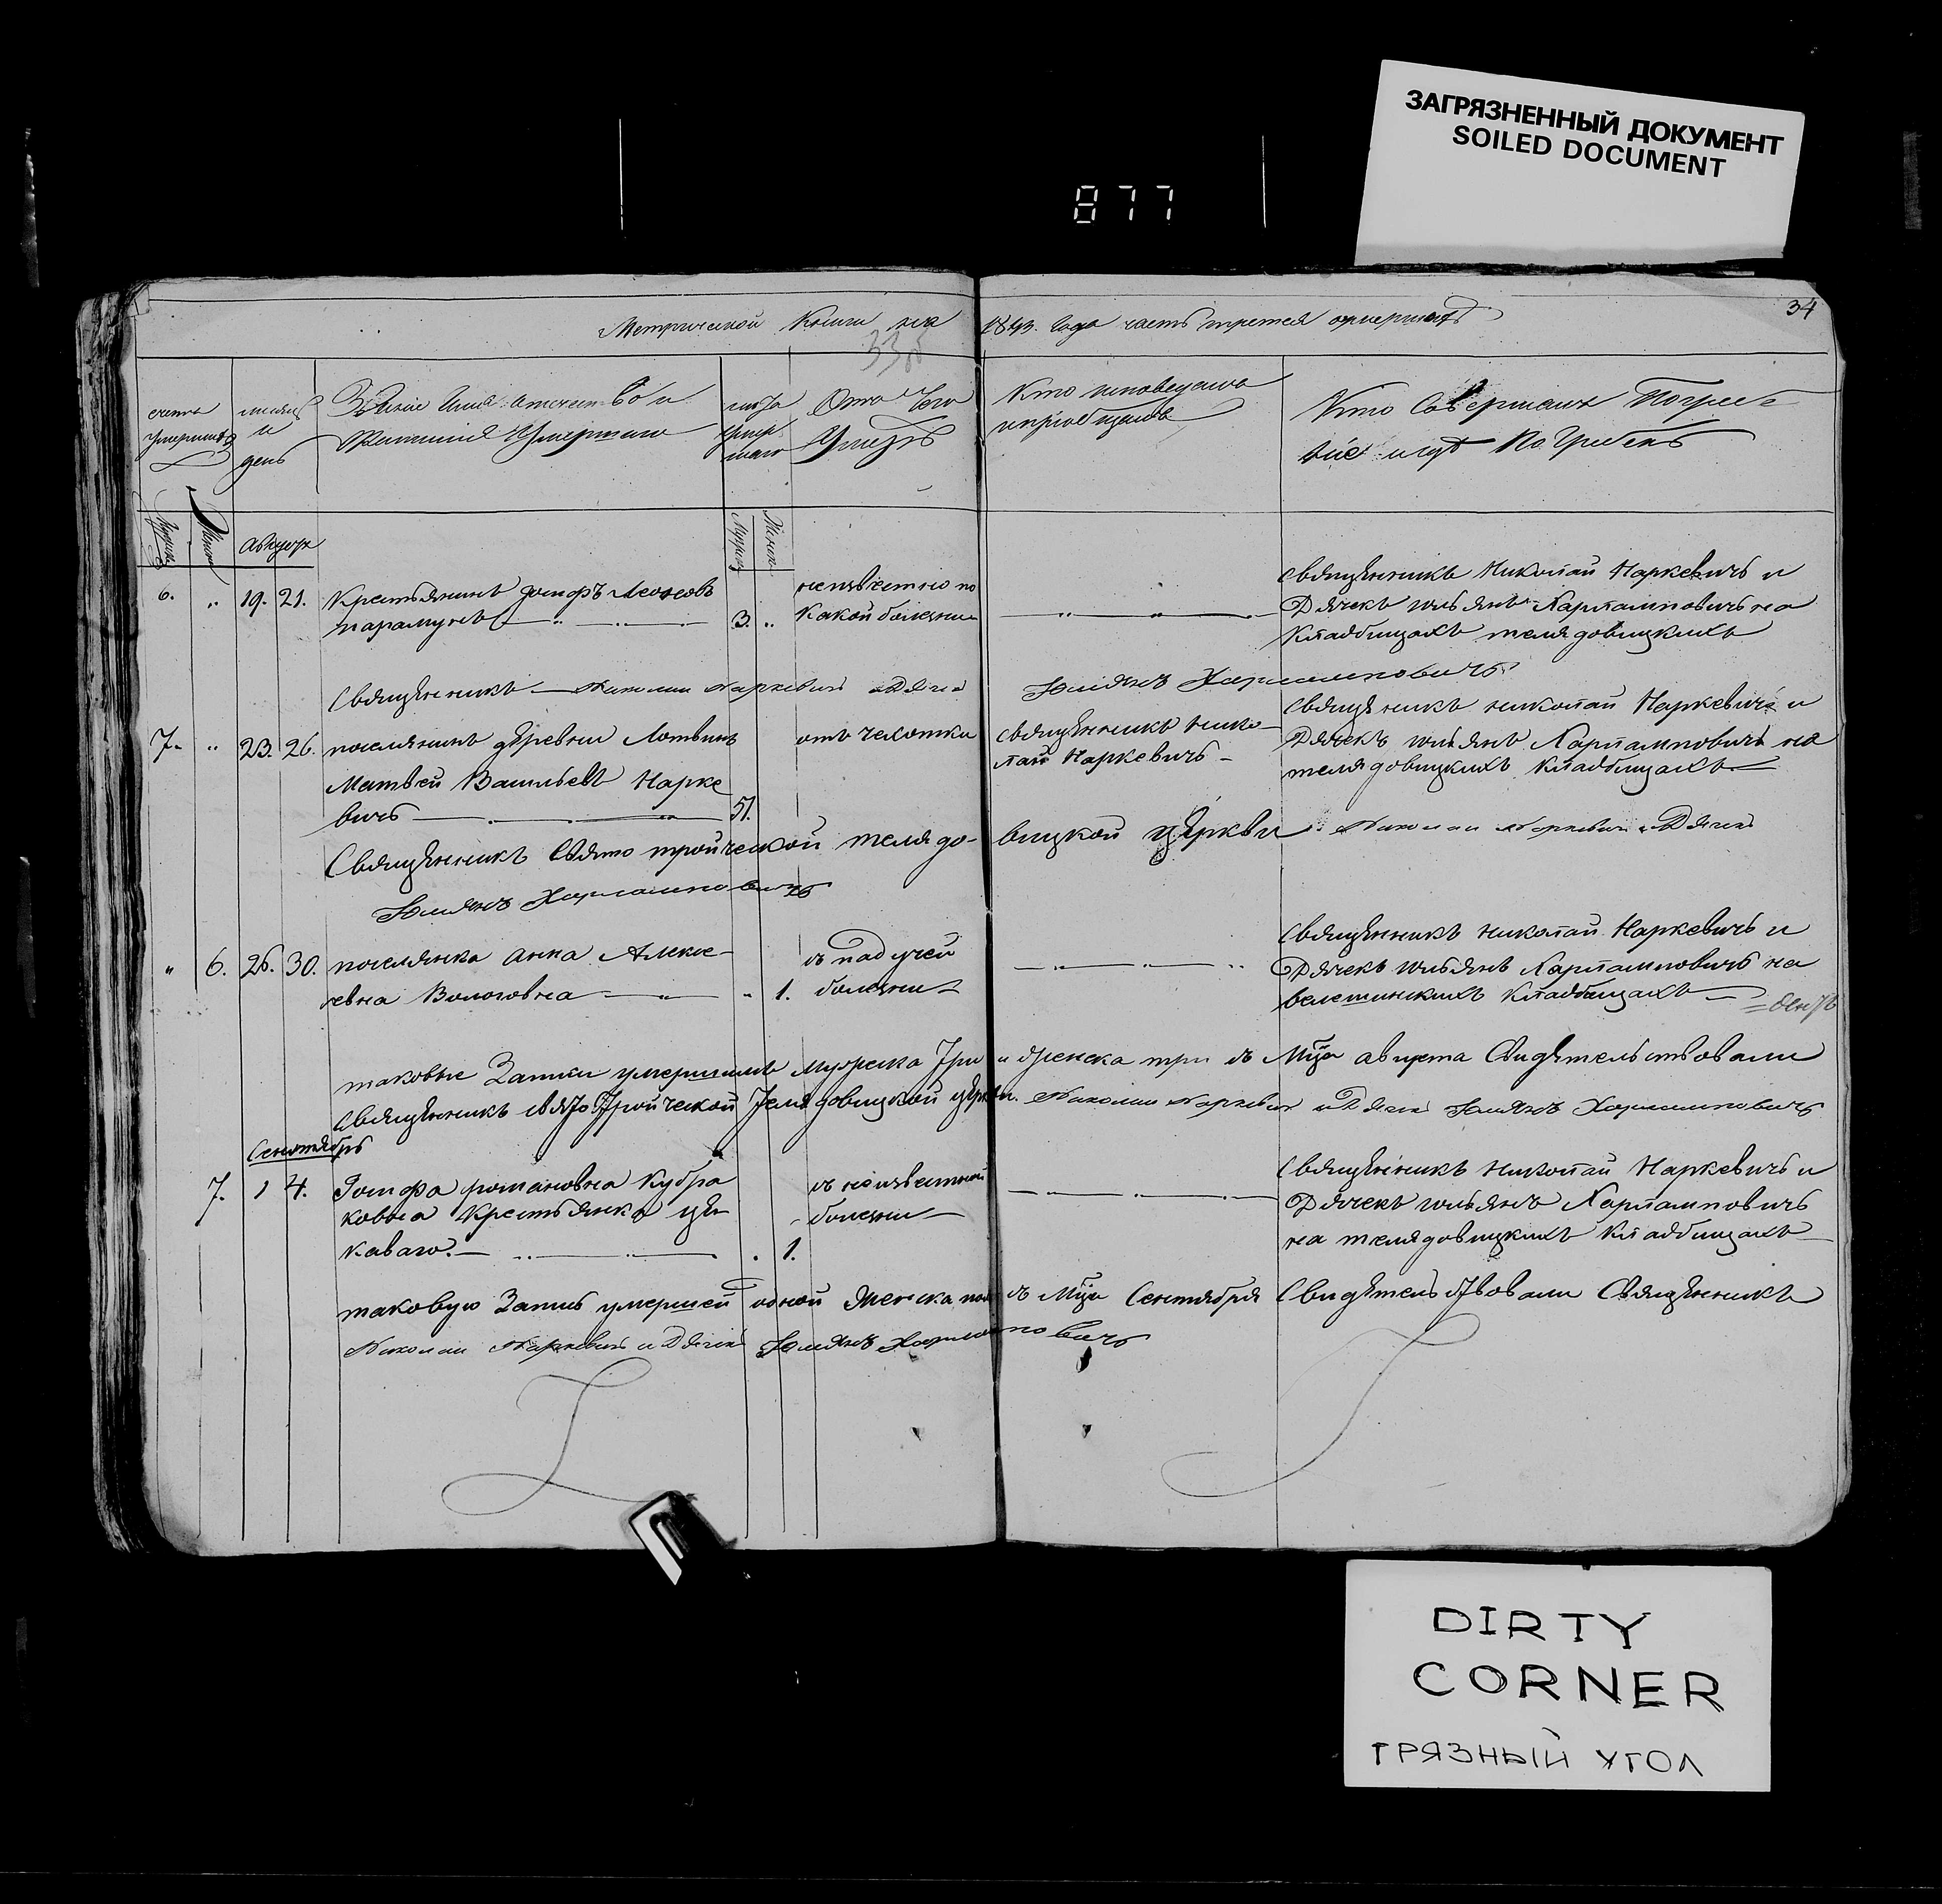 ЗАГРЯЗНЕННЫЙ ДОКУМЕНТ
SOILED DOCUMENT
877
34
Метрической Книги на 1843. Года часть третея о умершихъ
33об
счетъ умершихъ
месяцъ и день
Званіе Имя Отечество и Фамилия Умершаго
лета умер шаго
Отъ Чего Умеръ
Кто исповедалъ и пріобщалъ
Кто Совершалъ Погребе
ніе и гдѣ Погребенъ
Мужск. Женск. Августъ Мужск. Женск.
6. " 19. 21. Крестьянинъ
3. " неизвестно по
Какой болезни
Священникъ Николай Наркевичъ и
Дячекъ Юльянъ Харлампповичъ на
Кладбищахъ телядовицкихъ
Священникъ Николай Наркевичъ и Дячекъ Юльянъ Харлампповичъ
7. " 23. 26. поселянинъ деревни Лотвинъ
Матвей Васильевъ Нарке
вичъ 51.
отъ чахотки
Священникъ Нико
лай Наркевичъ
Священникъ Николай Наркевичъ и
Дячекъ Юльянъ Харлампповичъ на
телядовицкихъ Кладбищахъ
Священникъ Свято тройческой телядовицкой церкви Николай Наркевичъ и Дячекъ
Юльянъ Харлампповичъ
" 6. 26. 30. поселянка Анна Алексе
евна Вологовна " 1.
въ падучей
болезни
Священникъ Николай Наркевичъ и
Дячекъ Юльянъ Харлампповичъ на
Кладбищахъ
таковые Записи умершихъ мужска три и женска три въ Мца августа Свидетельствовали
Священникъ Свято Тройческой Телядовицкой церкви Николай Наркевичъ и Дячекъ Юльянъ Харлампповичъ
Сентябрь
7. 1 4. романовна Кубра
ковна Крестьянка
каваго. 1.
въ неизвестной
болезни
Священникъ Николай Наркевичъ и
Дячекъ Юльянъ Харлампповичъ
на телядовицкихъ Кладбищахъ
таковую Запись умершей одной женска пола въ Мца Сентября Свидетельствовали Священникъ
Николай Наркевичъ и Дячекъ Юльянъ Харлампповичъ
DIRTY
CORNER
ГРЯЗНЫЙ УГОЛ